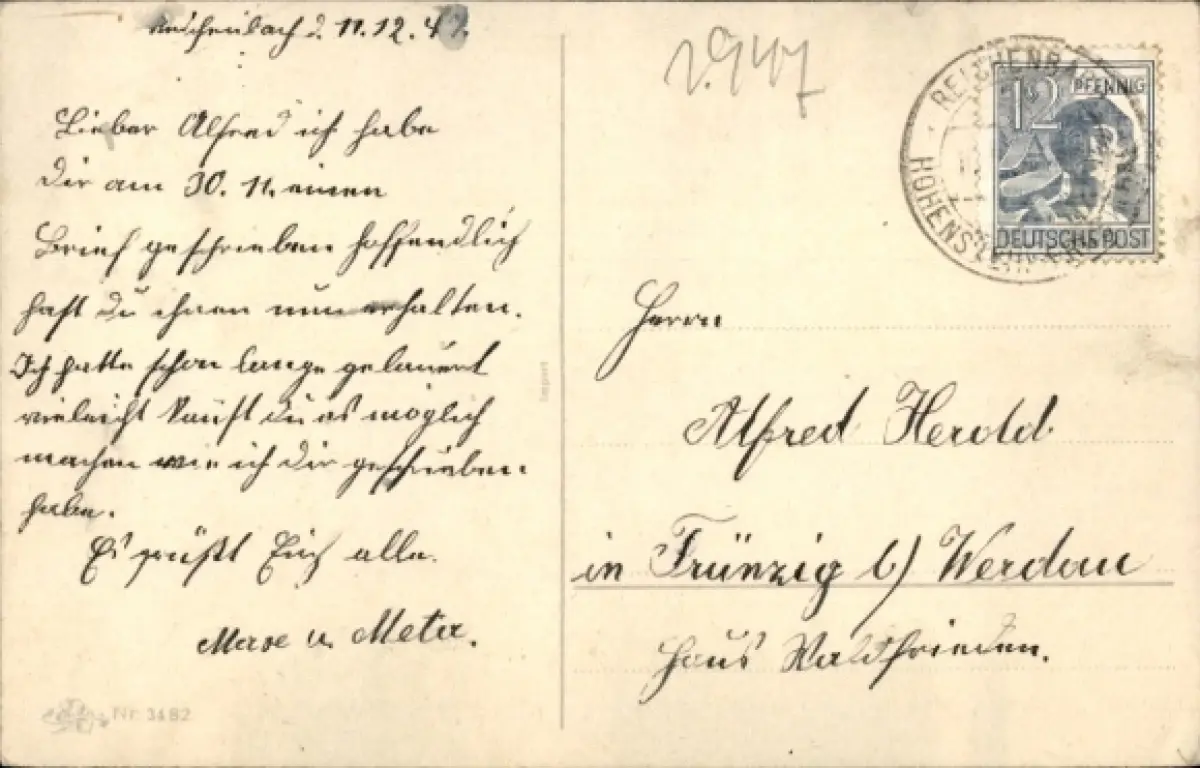 Reichenbach d. 11.12.47.
Lieber Alfred ich habe
dir am 30. 11. einen
Brief geschrieben hoffendlich
hast du ihnen nun erhalten.
Ich hatte schon lange gelauert
vieleicht kanst du es möglich
machen wie ich dir geschrieben
habe.
Es grüßt Euch alle.
u. Meta.
Nr. 3482
1947
REICHENBACH
HOHENST
12 PFENNIG
DEUTSCHE POST
Herrn
Alfred Herold
in Trünzig b/ Werdau
Haus Waldfrieden.